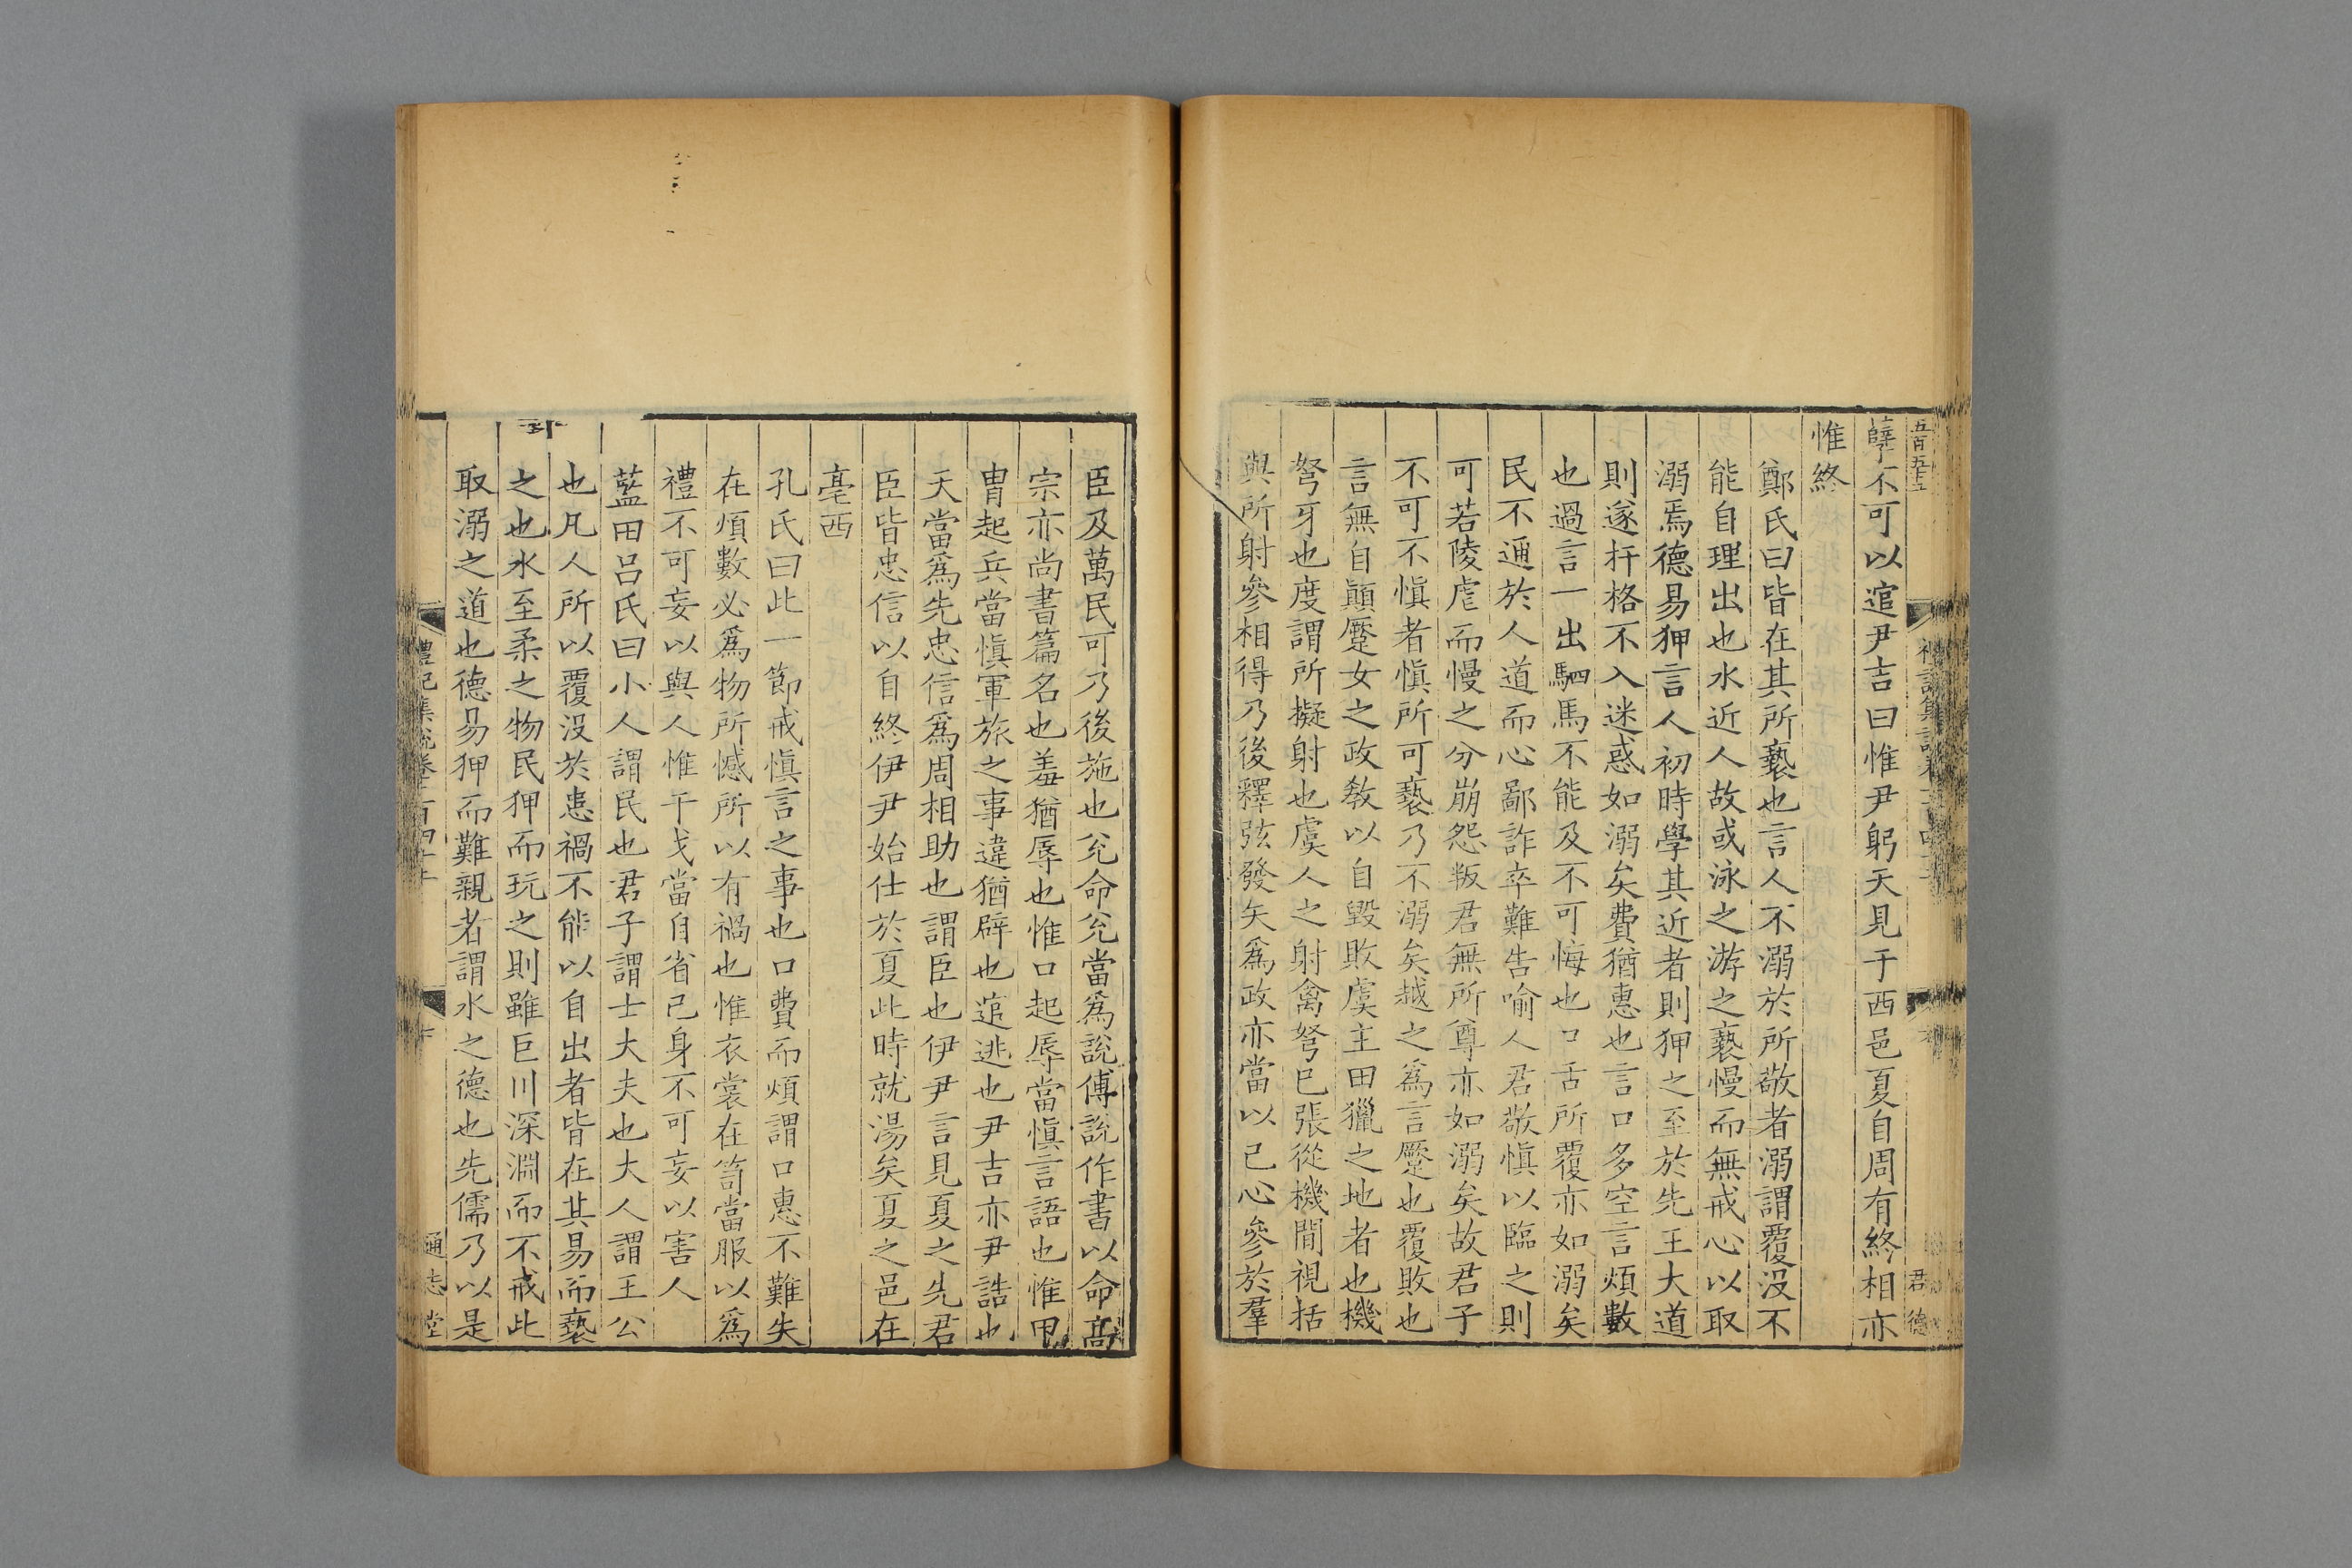 孽不可以逭尹吉曰惟尹躬天見于西邑夏自周有終相亦
惟終
鄭氏曰皆在其所褻也言人不溺於所敬者溺謂覆沒不
能自理出也水近人故或泳之游之褻慢而無戒心以取
溺焉德易狎言人初時學其近者則狎之至於先王大道
則遂杆格不入迷惑如溺矣費猶惠也言口多空言煩數
也過言一出駟馬不能及不可悔也口舌所覆亦如溺矣
民不通於人道而心鄙詐卒難告喻人君敬慎以臨之則
可若陵虐而慢之分崩怨叛君無所尊亦如溺矣故君子
不可不慎者慎所可褻乃不溺矣越之為言蹷也覆敗也
言無自顛蹷女之政教以自毀敗虞主田獵之地者也機
弩牙也度謂所擬射也虞人之射禽弩已張從機閒視括
與所射參相得乃後釋弦發矢為政亦當以己心參於羣
臣及萬民可乃後施也兊命兊當為說傅說作書以命高
宗亦尚書篇名也羞猶辱也惟口起辱當慎言語也惟甲
冑起兵當慎軍旅之事違猶辟也逭逃也尹吉亦尹誥也
天當為先忠信為周相助也謂臣也伊尹言見夏之先君
臣皆忠信以自終伊尹始仕於夏此時就湯矣夏之邑在
亳西
孔氏曰此一節戒慎言之事也口費而煩謂口惠不難失
在煩數必為物所憾所以有禍也惟衣裳在笥當服以為
禮不可妄以與人惟干戈當自省己身不可妄以害人
藍田呂氏曰小人謂民也君子謂士大夫也大人謂王公
也凡人所以覆沒於患禍不能以自出者皆在其易而褻
之也水至柔之物民狎而玩之則雖巨川深淵而不戒此
取溺之道也德易狎而難親者謂水之德也先儒乃以是
禮記集說卷一百四十
十
通志堂